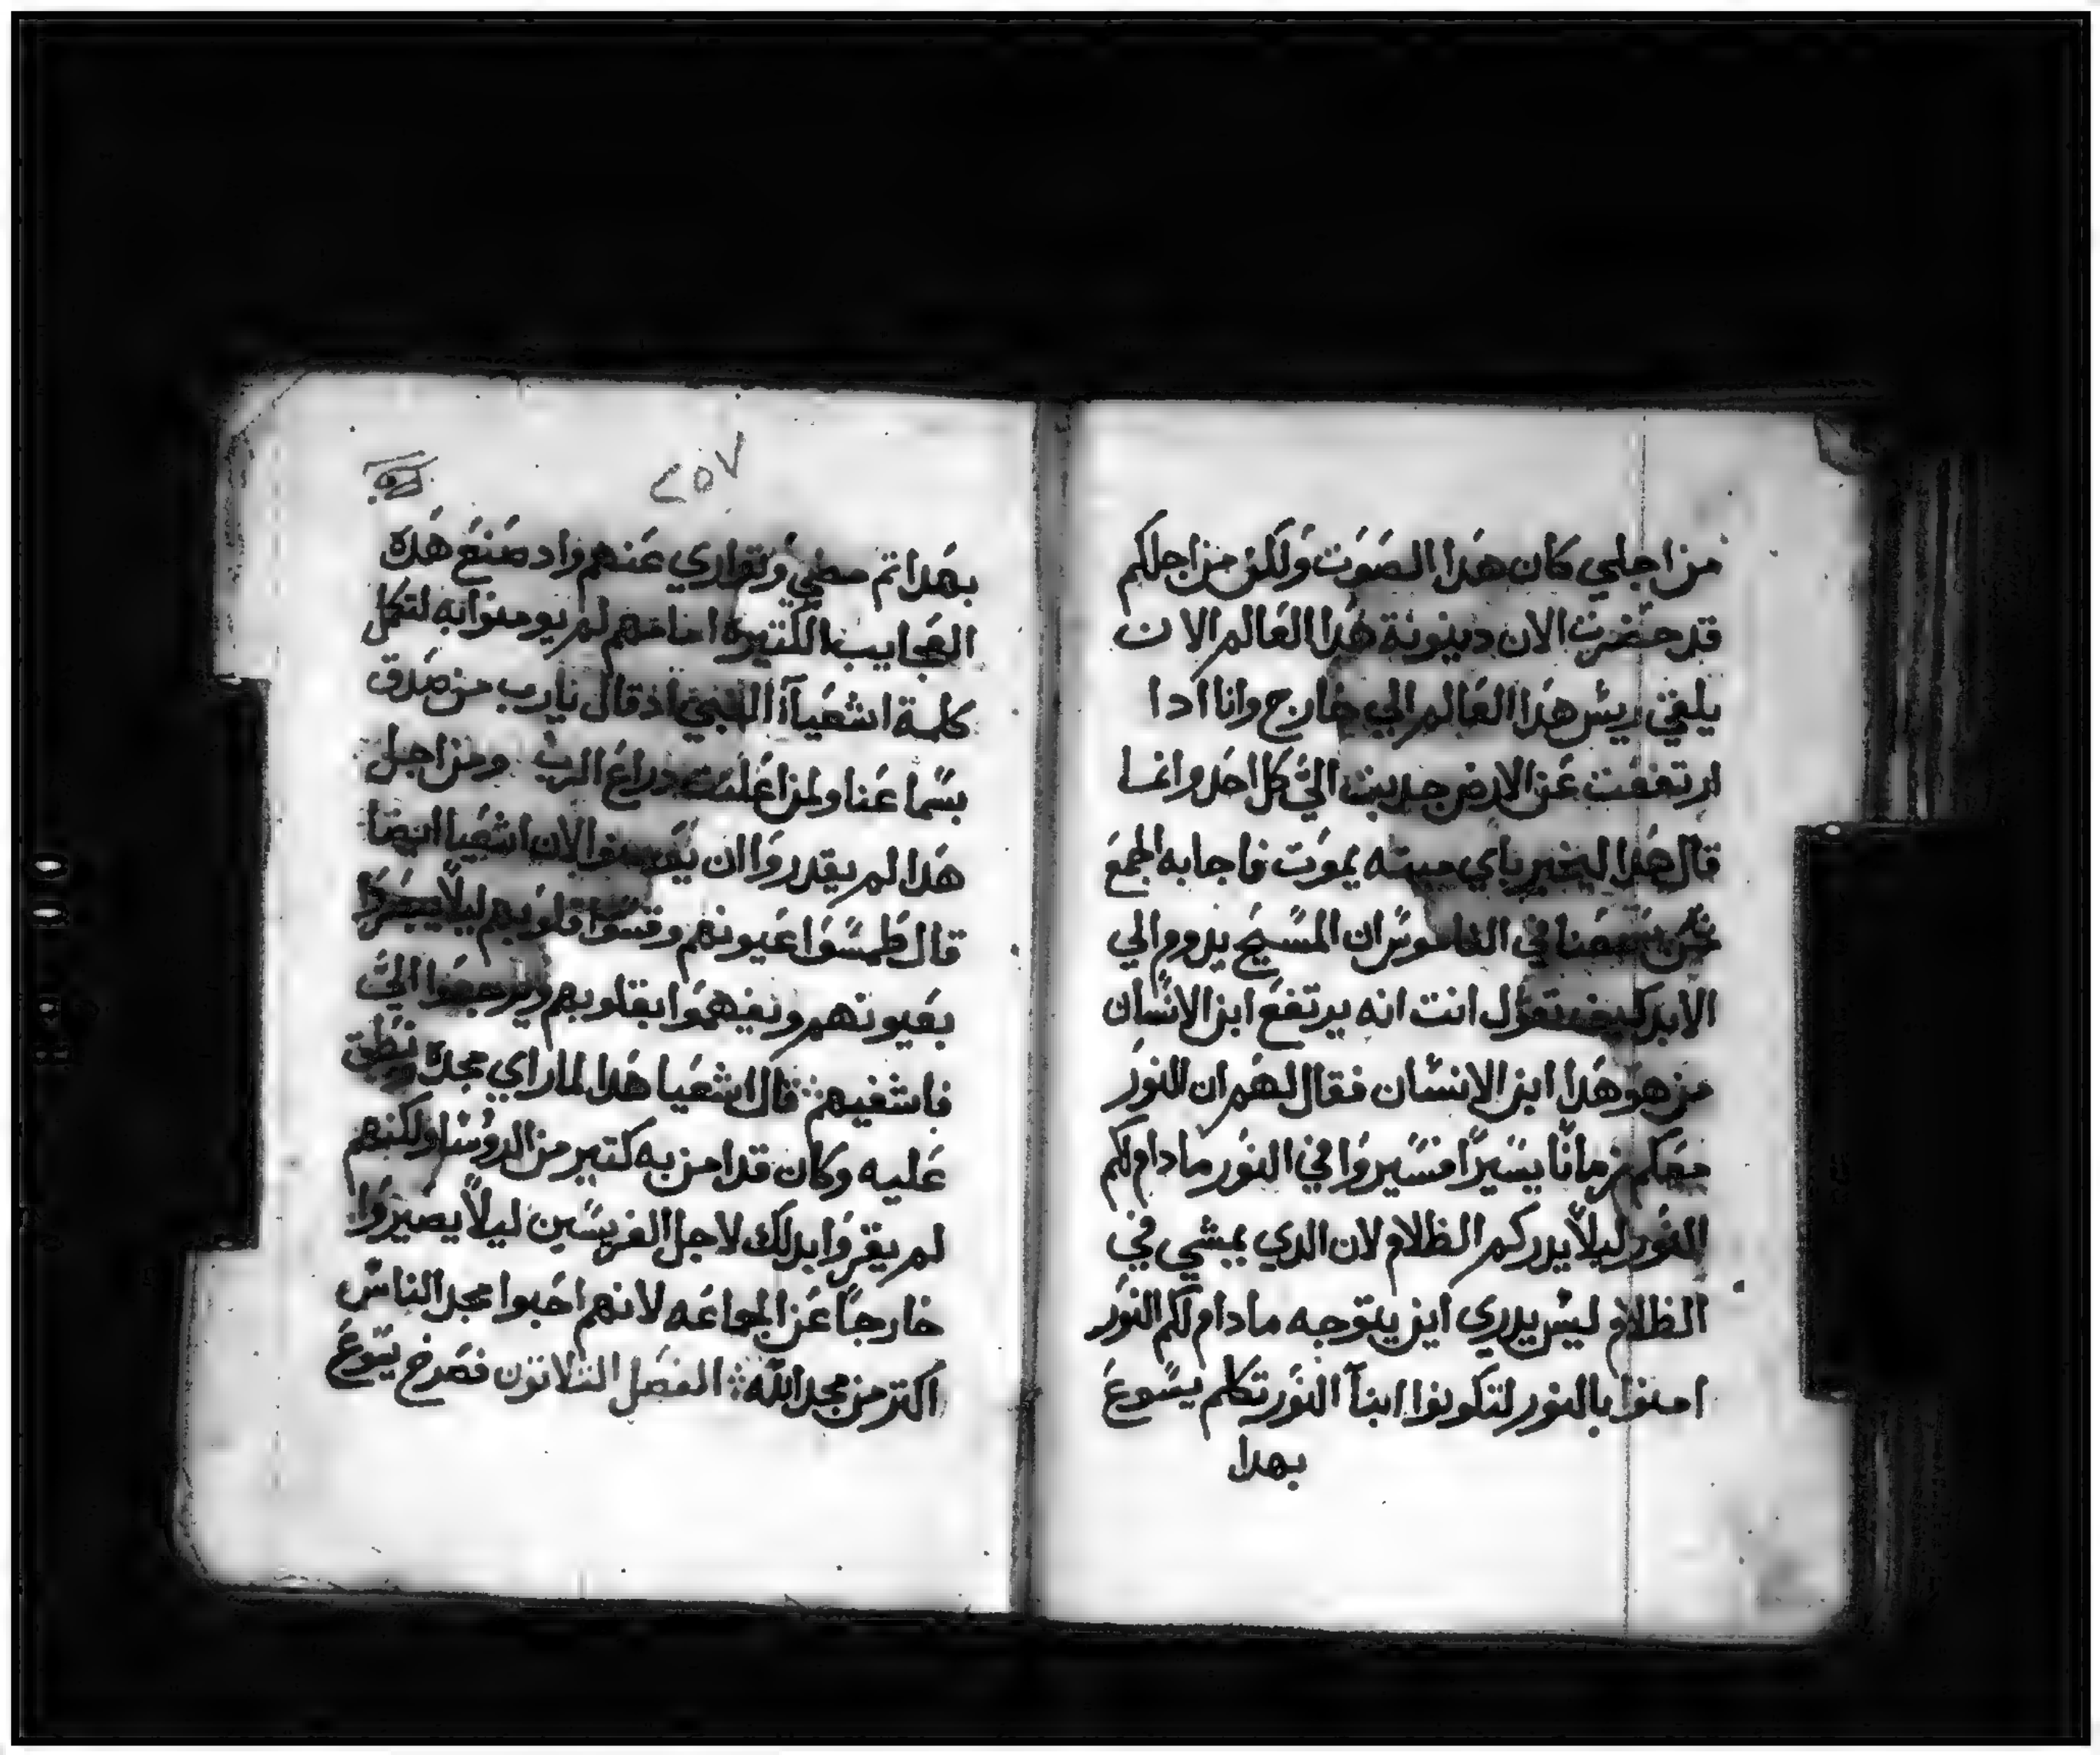 من اجلي كان هدا الصوت ولكن من اجلكم
قد حضرت الان دينونة هدا العالم الان
يلقي ريس هدا العالم الي خارج وانا ادا
ارتفعت عن الارض جدبت الي كل احد وانما
قال هدا ليخبر باي ميته يموت فاجابه الجمع
نحن سمعنا في الناموس ان المسيح يدوم الي
الابد كيف تقول انت انه يرتفع ابن الانسان
من هو هدا ابن الانسان فقال لهم ان النور
معكم زمانا يسيرا فسيروا في النور مادام لكم
النور ليلا يدرككم الظلام لان الدي يمشي في
الظلام ليس يدري اين يتوجه مادام لكم النور
امنوا بالنور لتكونوا ابنآ النور تكلم يسوع
بهدا
٢٥٧
بهدا تم مضي وتواري عنهم واد صنع هده
العجايب الكتيره امامهم لم يومنوا به لتكمل
كلمة اشعيآ النبي اد قال يارب من صدق
بسماعنا ولمن اعلنت دراع الرب ومن اجل
هدا لم يقدروا ان يومنوا لان اشعيا ايضا
قال طمسوا عيونهم وقسوا قلوبهم ليلا يبصروا
بعيونهم ويفهموا بقلوبهم ويرجعوا الي
فاشفيهم قال اشعيا هدا لما راي مجده ونطق
عليه وكان قد امن به كتير من الروسا ولكنهم
لم يقروا بدلك لاجل الفريسين ليلا يصيروا
خارجا عن الجماعه لانهم احبوا مجد الناس
اكتر من مجد الله الفصل التلاتون فصرخ يسوع